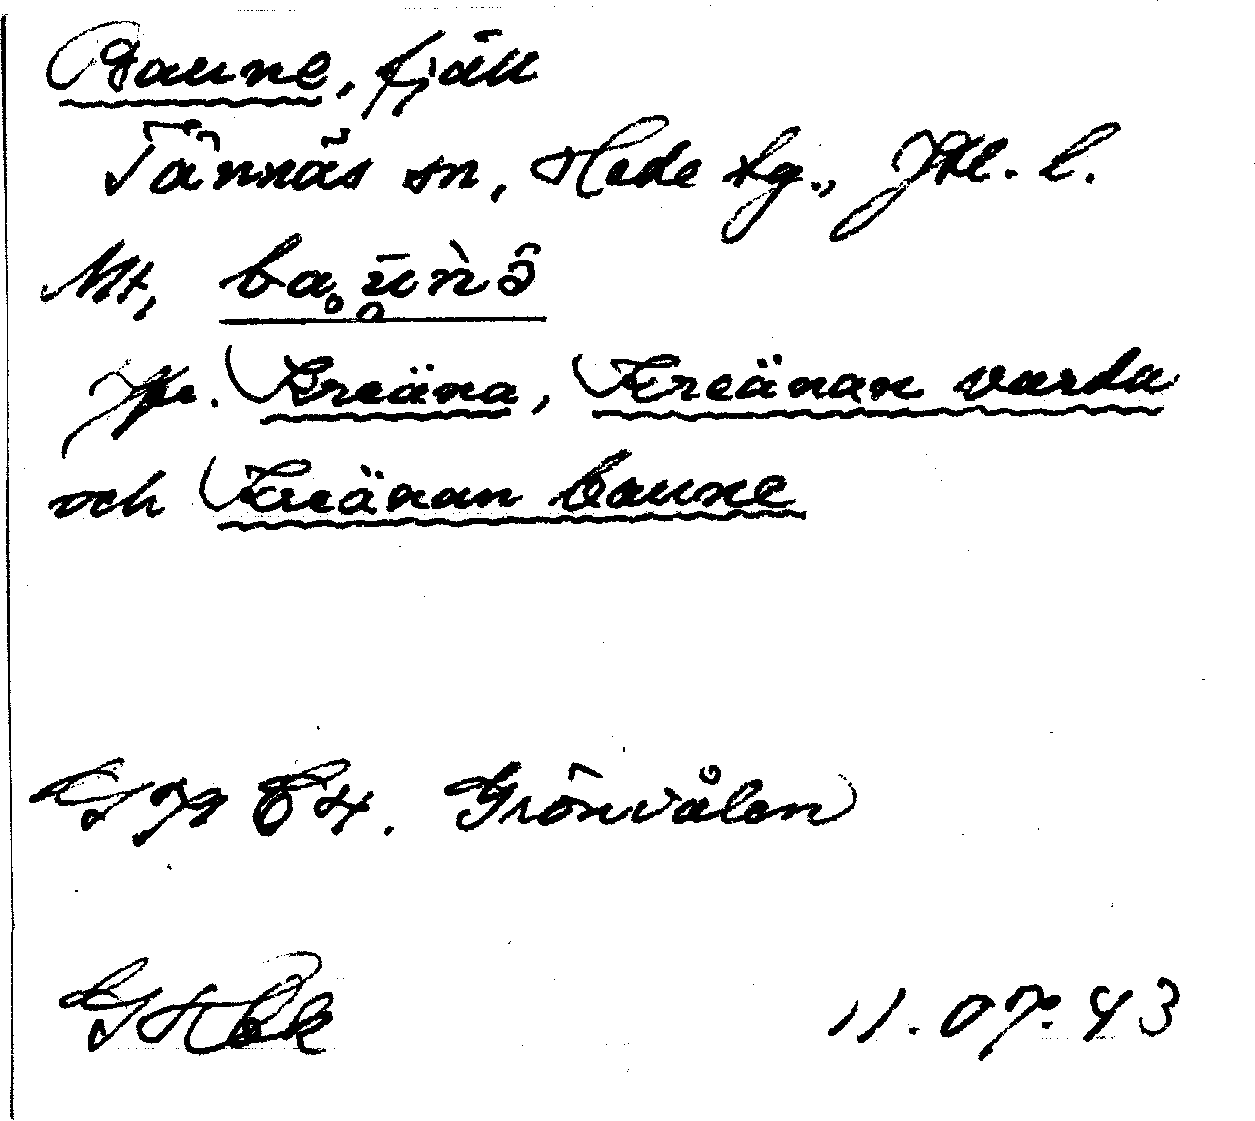 Baune, fjäll
Tännäs sn, Hede tg., Jtl. l.
Jfr. Kreäna, Kreänan varda
och Kreänan baune
84. Grönvålen
11.07.43